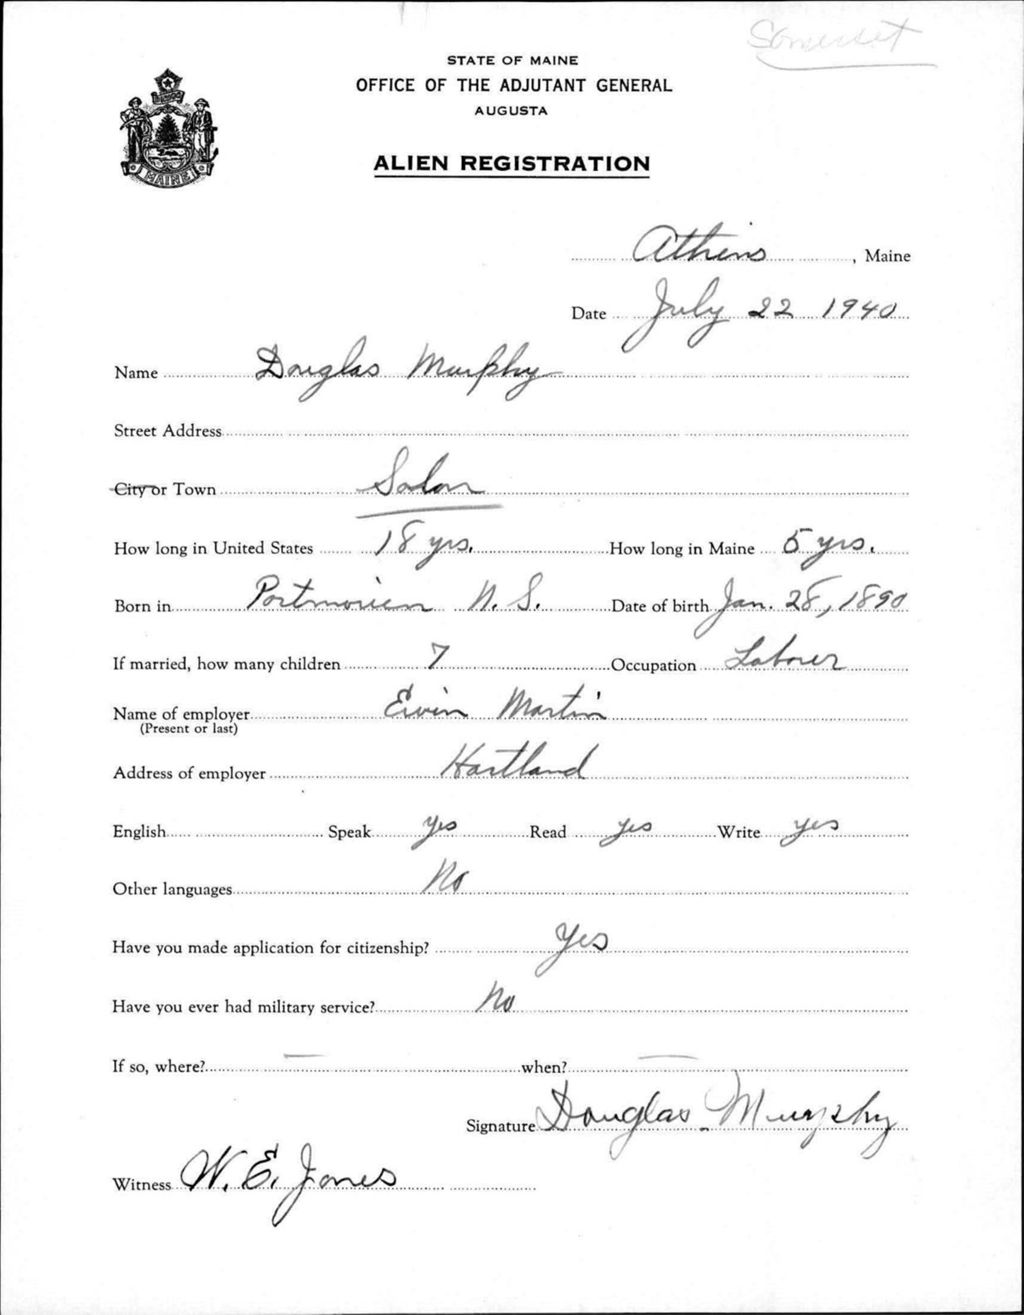 Somerset
STATE OF MAINE
OFFICE OF THE ADJUTANT GENERAL
AUGUSTA
ALIEN REGISTRATION
MAINE
Athens, Maine
Date July 22 1940
Name Douglas Murphy
Street Address
City or Town Solon
How long in United States 18 yrs. How long in Maine 5 yrs.
Born in Portmorien N. S. Date of birth Jan. 28, 1890
If married, how many children 7 Occupation Laborer
Name of employer Ervin Martin
(Present or last)
Address of employer Hartland
English Speak yes Read yes Write yes
Other languages No
Have you made application for citizenship? Yes
Have you ever had military service? No
If so, where? — when? —
Signature Douglas Murphy
Witness W. E. Jones